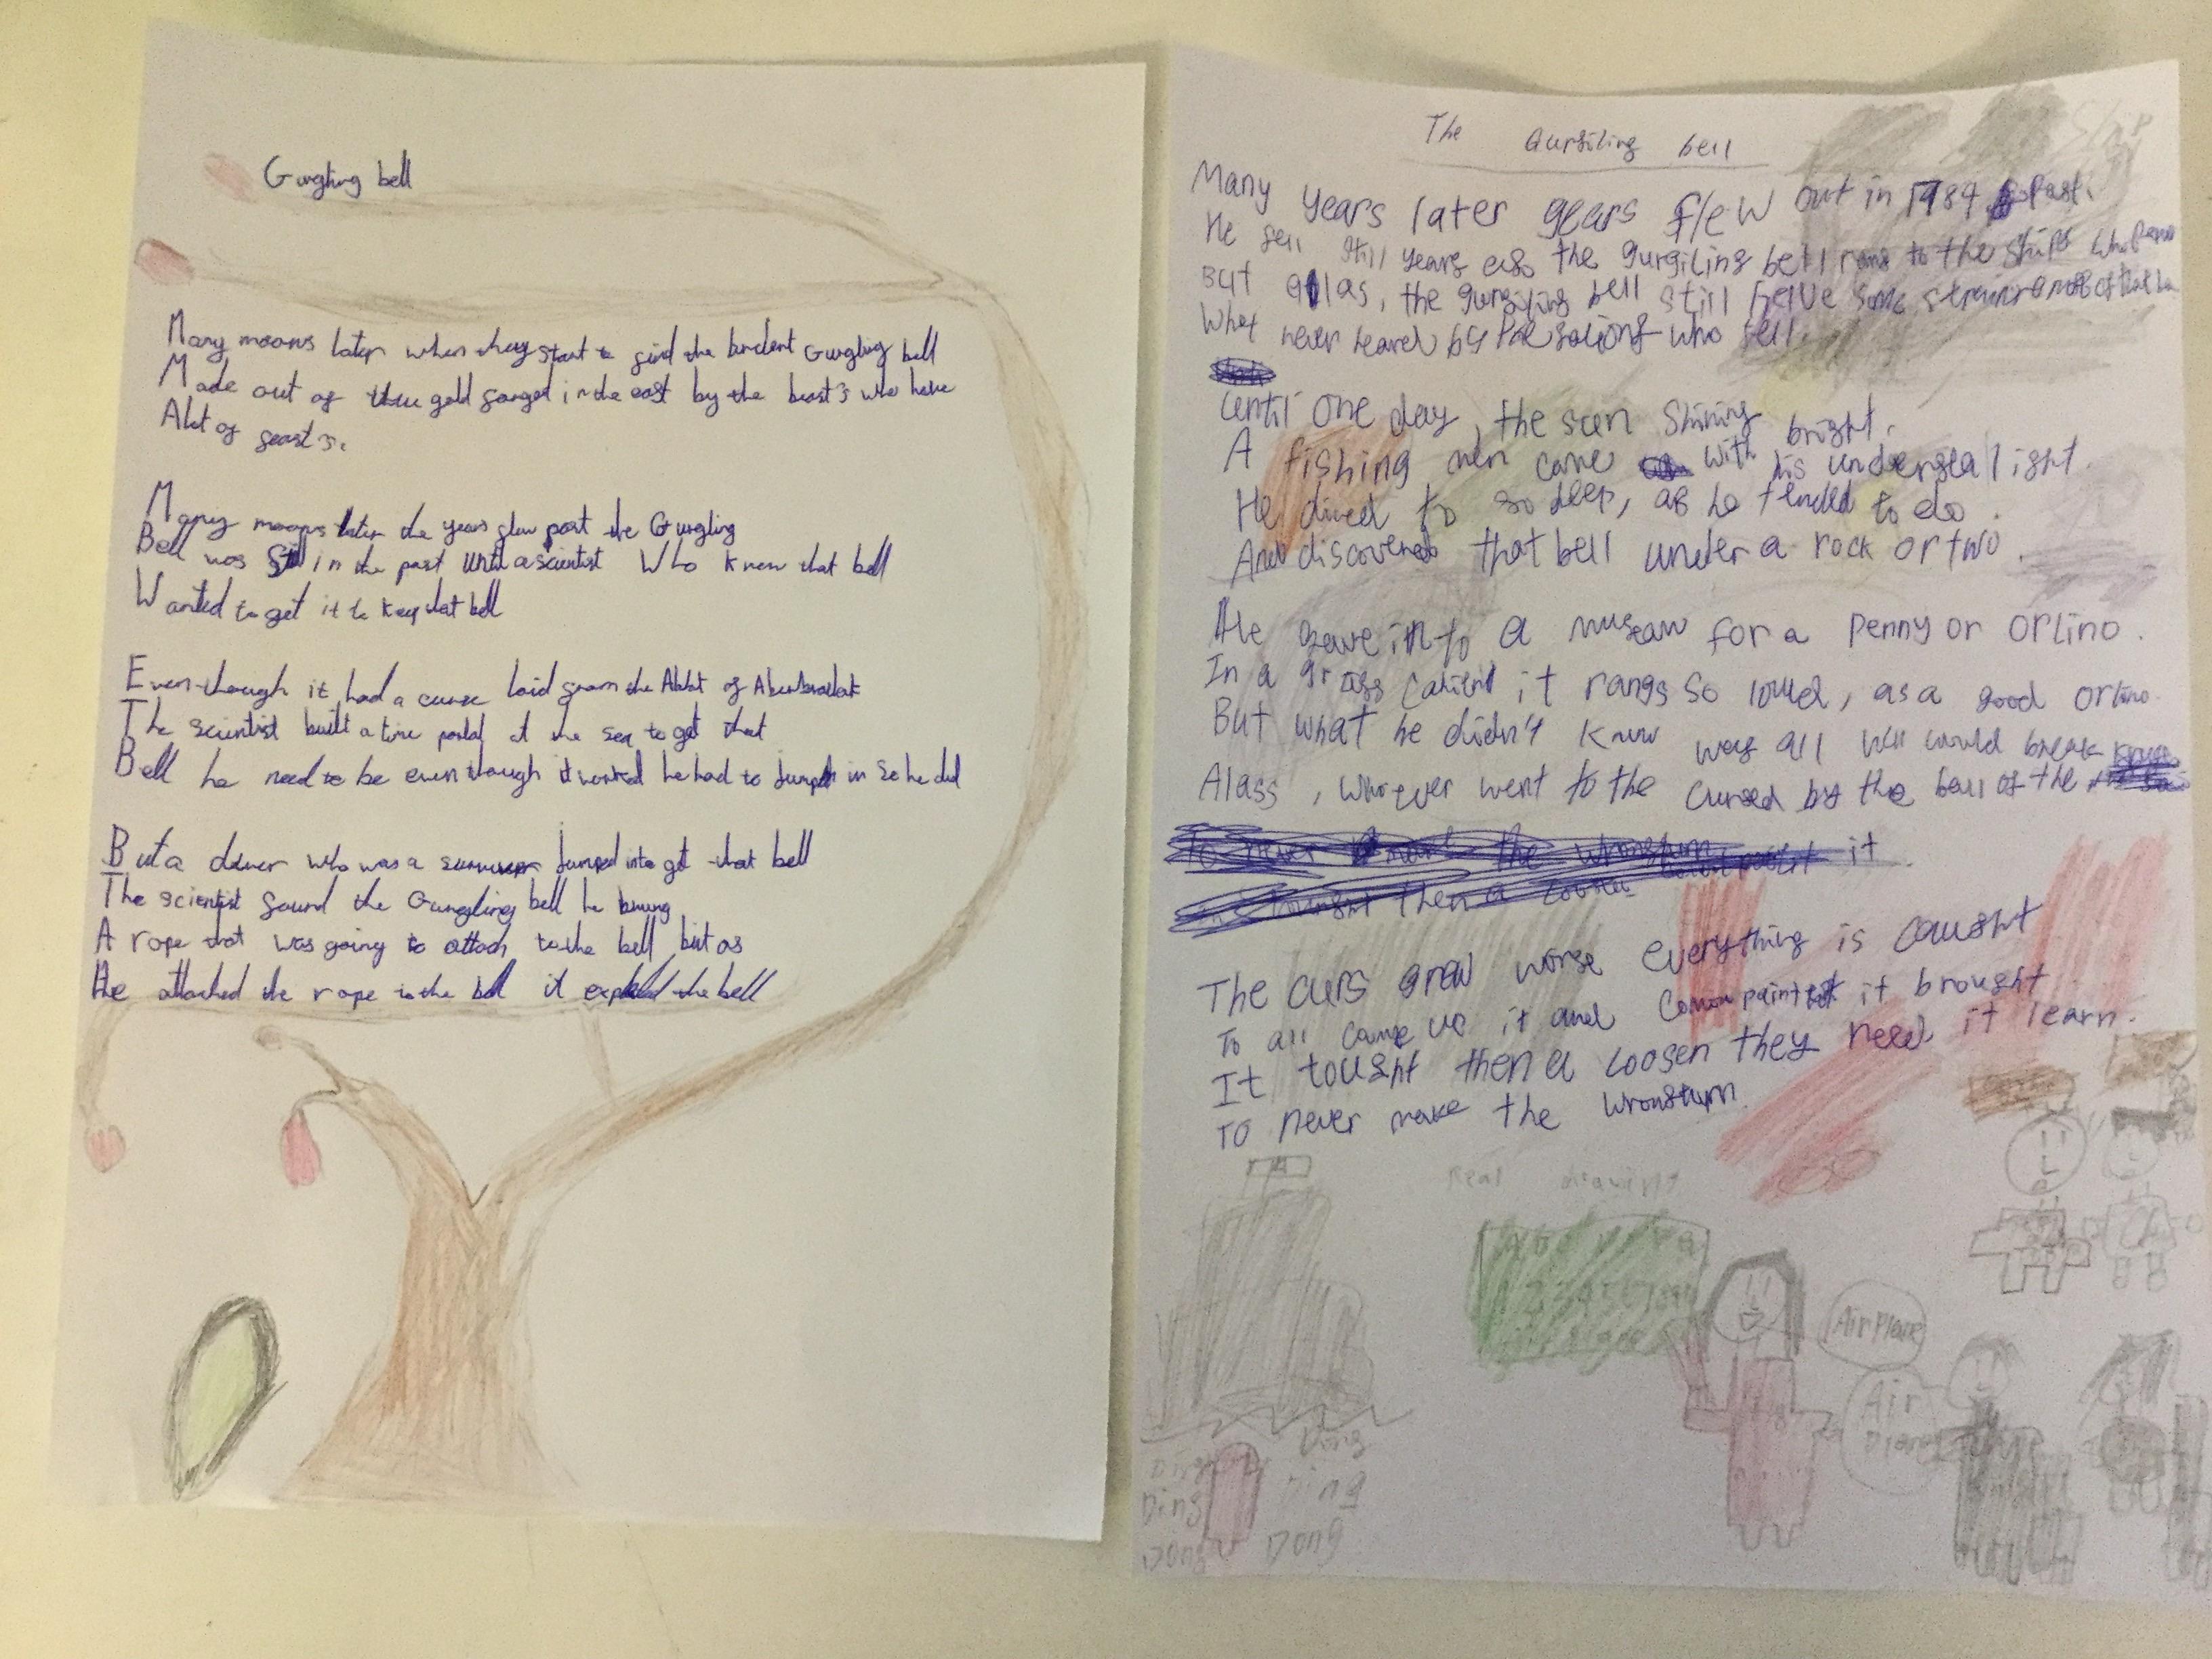 Gurgling bell
Many moons later when they start to find the Gurgling bell
Made out of gold forged in the east by the beast's who have
Alot of feast's.
Many moons later the years flew past the Gurgling
Bell was Still in the past until a scientist Who knew that bell
Wanted to get it to keep that bell
Even though it had a curse laid from the Abbot of
The scientist built a time portal at the sea to get that
Bell he need to be even though it worked he had to jump in so he did
But a diver who was a jumped into get that bell
The scientist found the Gurgling bell he brung
A rope that was going to attach to the bell but as
He attached the rope to the bell it the bell
The Gurgiling bell
Many years later years flew out in 1984 Past.
He still years the gurgiling bell to the ships
But alas, the gurgiling bell still have some
What never heard by who fell.
Until one day, the sun Shining bright.
A fishing men came with his undersea light.
He dived to so deep, as he tended to do.
And discovered that bell under a rock or two.
He gave it to a museam for a Penny or orlino.
In a it rangs so loued, as a good orlino.
But what he didn't know was all would break
Alass, whoever went to the cursed by the bell of the
The curs grew worse everything is caught
To all came us it and it brought.
It tought then a loosen they need it learn.
To never make the wrongturn.
Real drawing
Airplane
Air
Ding
Ding
Dong
Ding
Ding
Dong